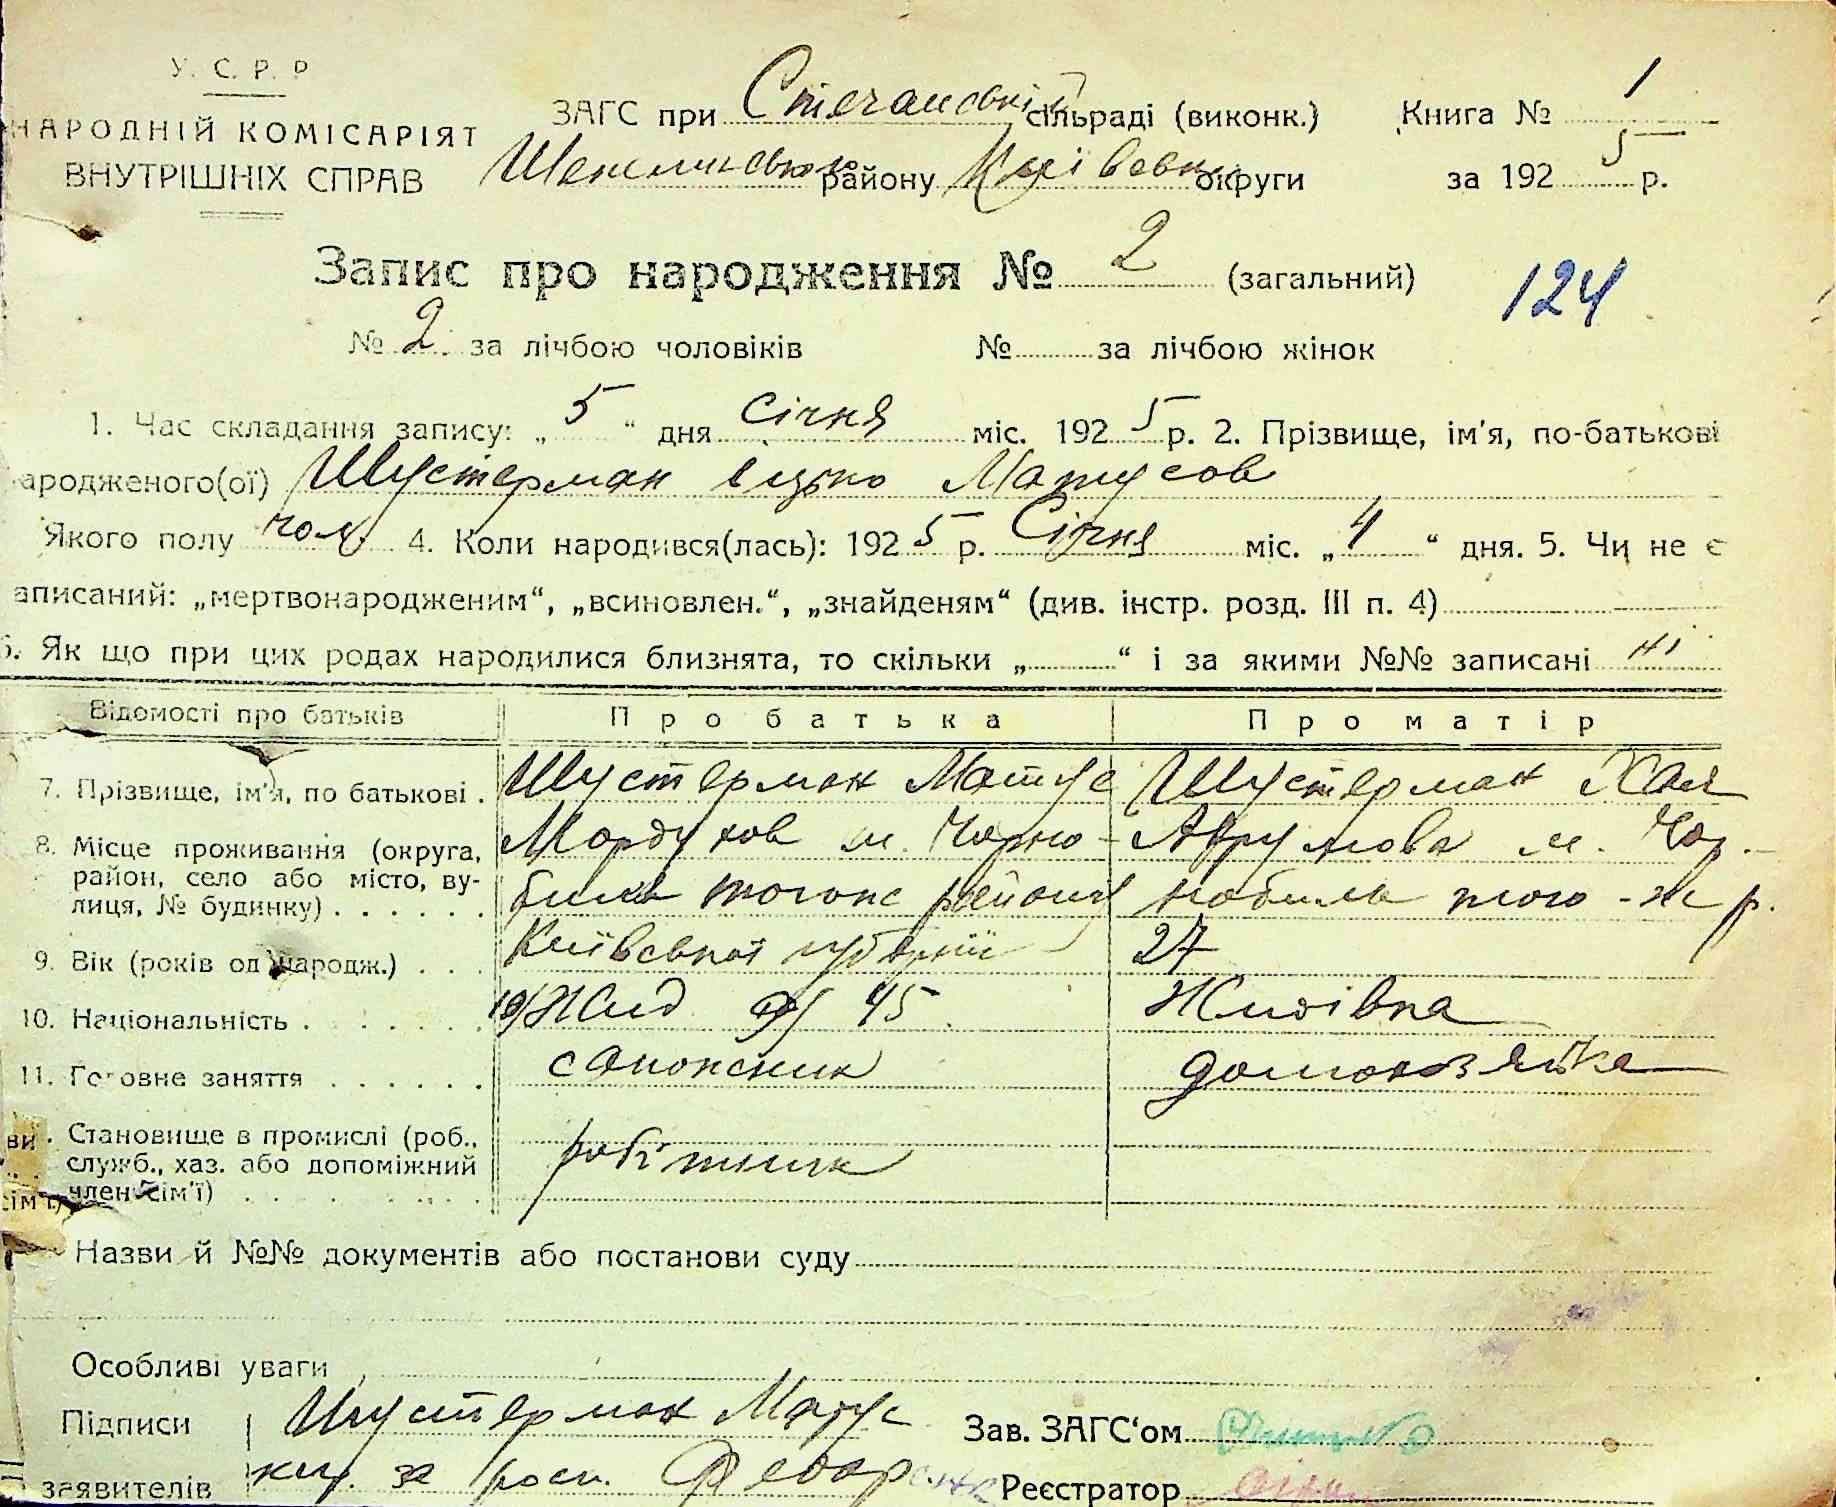 У. С. Р. Р
НАРОДНІЙ КОМІСАРІЯТ
ВНУТРІШНІХ СПРАВ
ЗАГС при сільраді (виконк.) Книга № 1
району округи за 192 5 р.
Запис про народження № 2 (загальний)
124
№ 2 за лічбою чоловіків № за лічбою жінок
1. Час складання запису: „ 5 “ дня Січня міс. 192 5 р. 2. Прізвище, ім'я, по-батькові
ародженого(ої) Шустерман Іцько Матусов
Якого полу чол. 4. Коли народився(лась): 192 5 р. Січня міс. „ 4 “ дня. 5. Чи не є
аписаний: „мертвонародженим“, „всиновлен.“, „знайденям“ (див. інстр. розд. III п. 4)
6. Як що при цих родах народилися близнята, то скільки „ “ і за якими №№ записані ні
Відомості про батьків Про батька Про матір
7. Прізвище, ім'я, по батькові . Шустерман Матус Шустерман Хая
8. Місце проживання (округа, Мордухов м. Чорно- м. Чор-
район, село або місто, ву-
лиця, № будинку) . . . . . . биль тогож району нобиль того-ж р.
9. Вік (років од народж.) . . . Київської губернії 27
10. Національність . . . . . . 10/ Жид 9/ 45 Жидівка
11. Головне заняття . . . . . . сапожник домохозяйка
Становище в промислі (роб., робітник
служб., хаз. або допоміжний
член сім'ї) . . . . . . . .
ви
сім'ї)
Назви й №№ документів або постанови суду
Особливі уваги
Підписи Шустерман Матус Зав. ЗАГС'ом
заявителів за Реєстратор